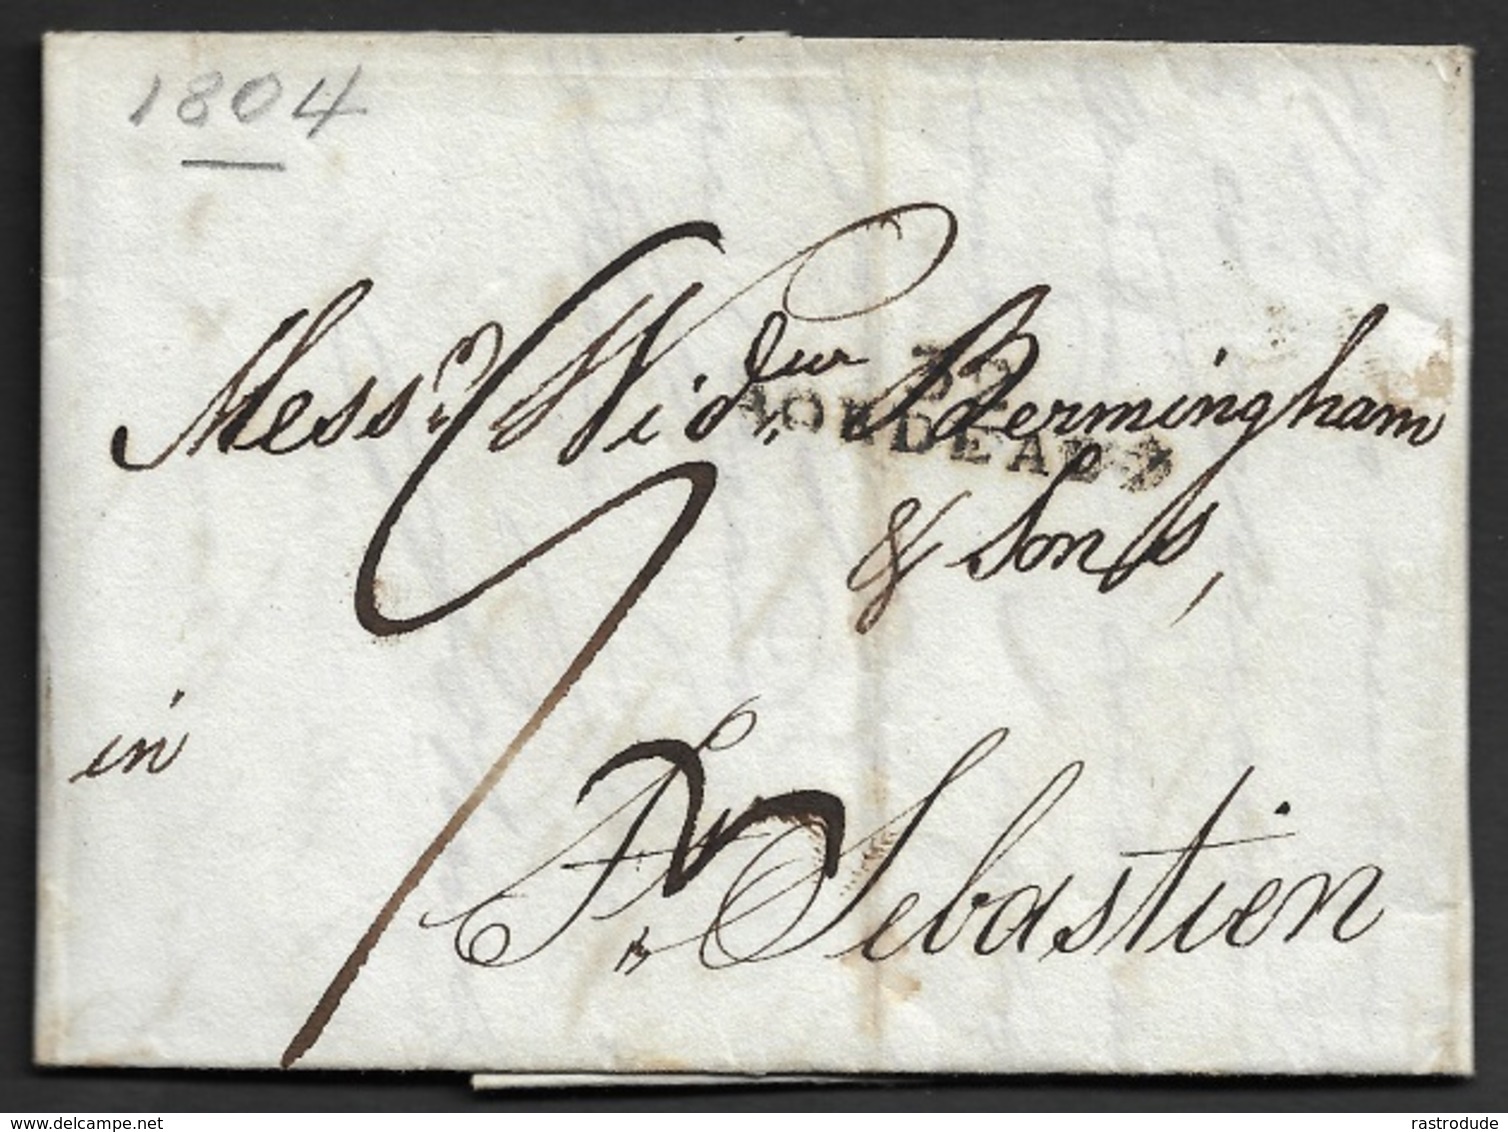 1804
Mess.rs Wid.dur Bermingham
32
BORDEAUX
& Sons,
in
St. Sebastien
delcampe.net
rastrodude